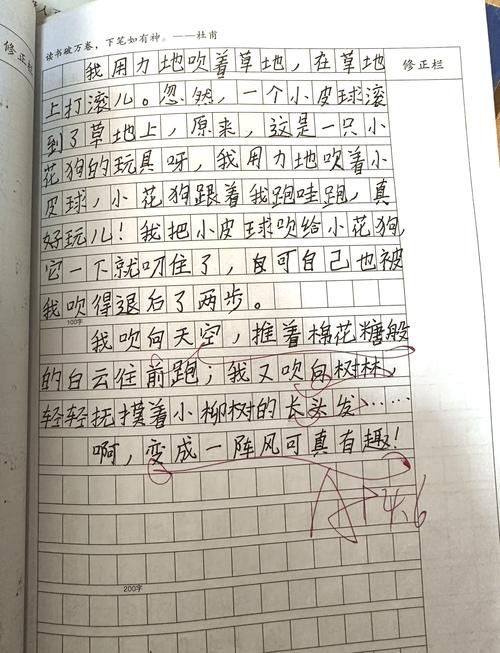 读书破万卷，下笔如有神。——杜甫
修正栏
修正栏
我用力地吹着草地，在草地
上打滚儿。忽然，一个小皮球滚
到了草地上，原来，这是一只小
花狗的玩具呀，我用力地吹着小
皮球，小花狗跟着我跑哇跑，真
好玩儿！我把小皮球吹给小花狗，
它一下就叼住了，可自己也被
我吹得退后了两步。
100字
我吹向天空，推着棉花糖般
的白云往前跑；我又吹向树林，
轻轻抚摸着小柳树的长头发……
啊，变成一阵风可真有趣！
A+ 4.6
200字